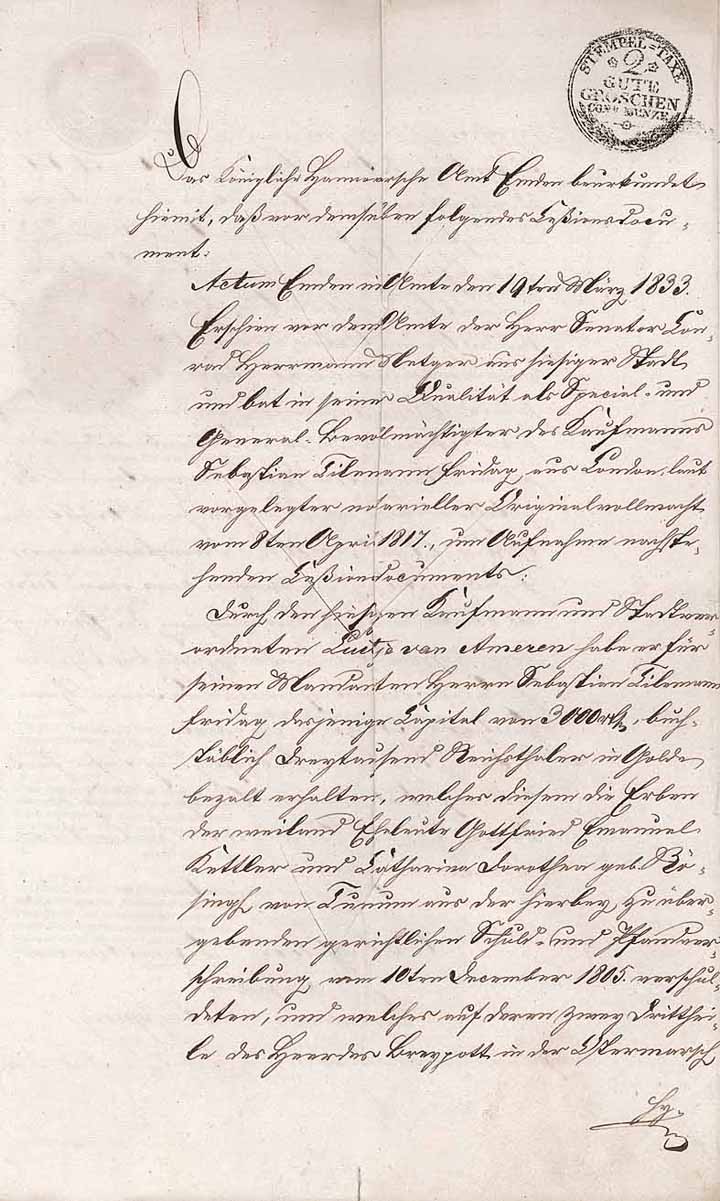 STEMPEL=TAXE
2
GUTE
GROSCHEN
CONV. MÜNZE
Das Königliche Hannoversche Amt Emden beurkundet
hiemit, daß vor demselben folgendes Ceßionsdocu-
ment:
Actum Emden im Amte den 19ten März 1833.
Erschien vor dem Amte der Herr Senator Con-
rad Herrmann Metger aus hiesiger Stadt
und bat in seiner Qualität als Special- und
General-Bevolmächtigter des Kaufmanns
Sebastian Tilemann Fridag aus London, laut
vorgelegter notarieller Originalvollmacht
vom 8ten April 1817., um Aufnahme nachste-
henden Ceßionsdocuments:
Durch den hiesigen Kaufmann und Stadtver-
ordneten van Ameren habe er für
seinen Mandanten Herrn Sebastian Tilemann
Fridag dasjenige Capital von 3000 rth, buch-
stäblich Dreytausend Reichsthaler in Golde
bezalt erhalten, welches diesem die Erben
der weiland Eheleute Gottfried Emanuel
Kettler und Catharina Dorothea geb. Rö-
singh von Tunum aus der hierbey zu über-
gebenden gerichtlichen Schuld- und Pfandver-
schreibung vom 10ten December 1805. verschul-
deten, und welches auf deren zwey Dritthei-
le des Heerdes Breypott in der Ostermarsch